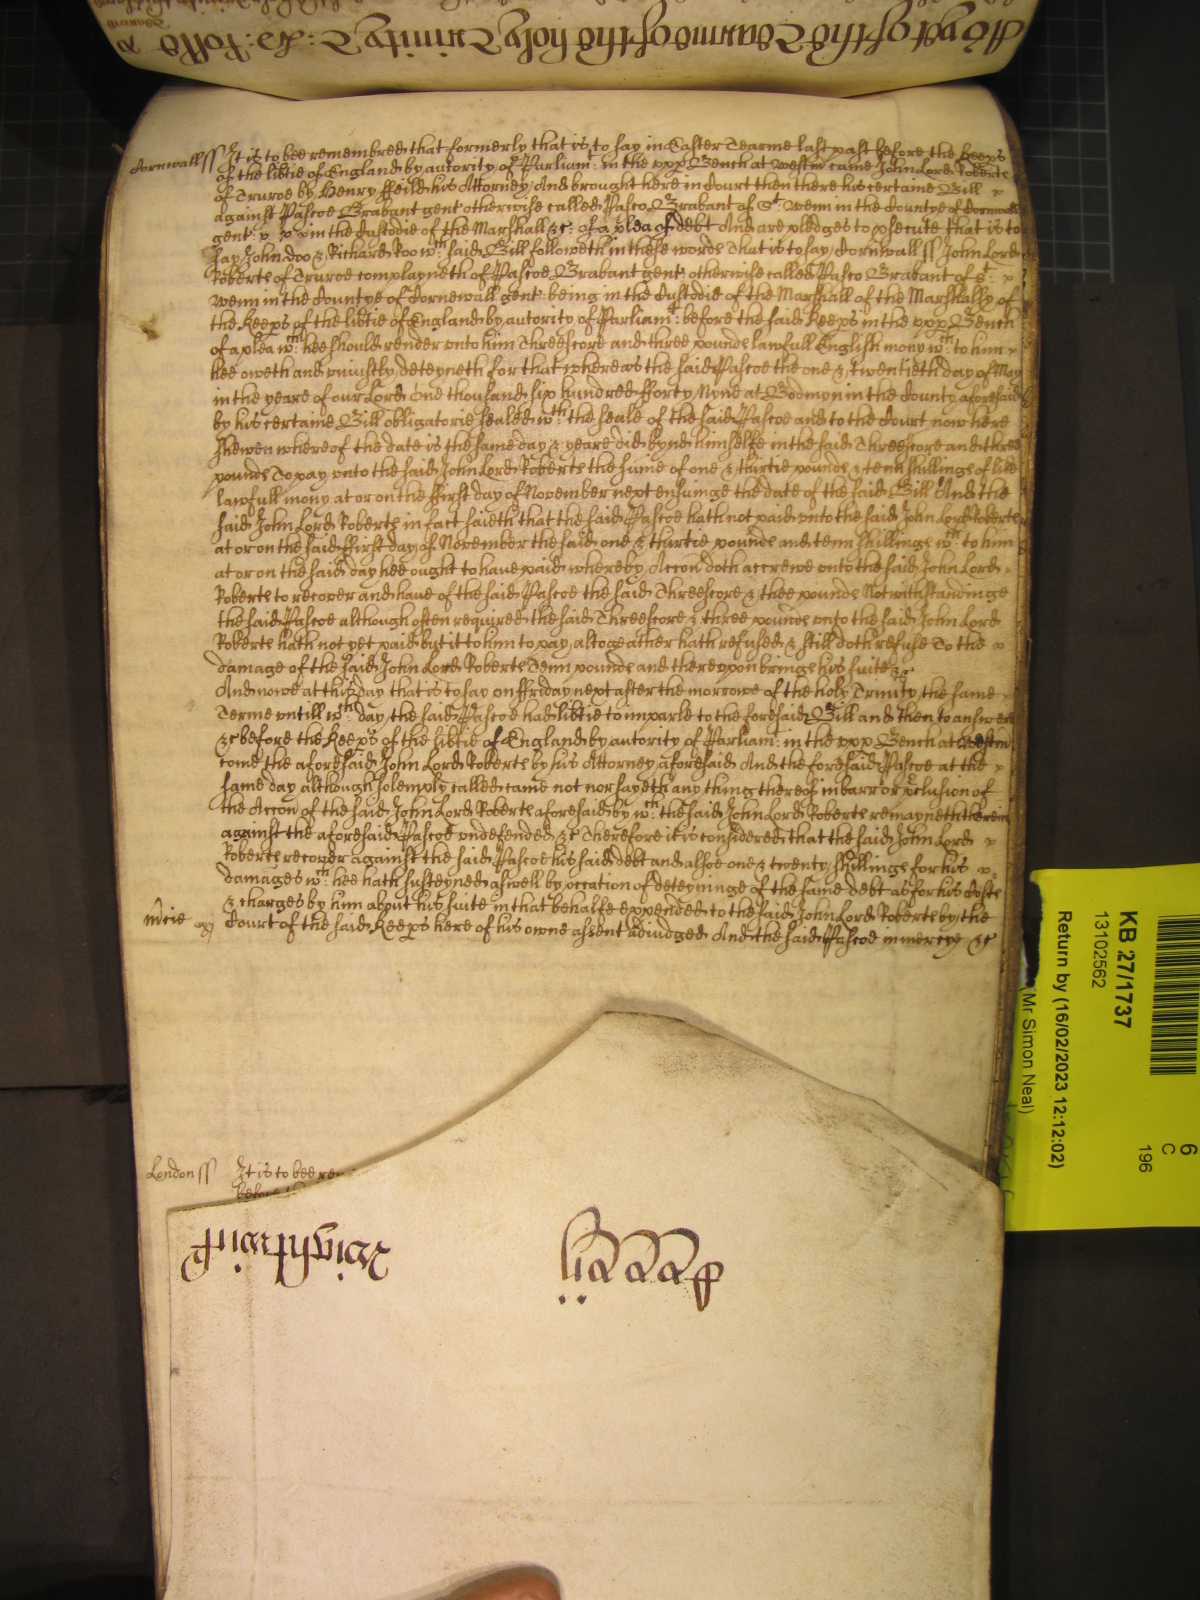 As yet of the Tearme of the holy Trinity
Cornwall ss It is to bee remembred that formerly that is to say in Easter Tearme last past before the Keeps
of the libtie of England by autority of Parliamt: in the vpp Bench at Westm came John Lord Roberts
of Truroe by Henry ffeild his Attorney And brought here in Court then there his certaine Bill
against Pascoe Brabant gent otherwise called Pasco Brabant of St: wenn in the Countye of Cornwall
gent: in the Custodie of the Marshall &c: of a plea of debt And are pledges to psecute that is to
say John doo & Richard Roo wch said Bill followeth in these words That is to say Cornwall ss John Lord
Roberts of Truroe complayneth of Pascoe Brabant gent: otherwise called Pasco Brabant of St:
wenn in the Countye of Cornewall gent: being in the Custodie of the Marshall of the Marshally of
the Keeps of the libtie of England by autority of Parliamt: before the said Keeps in the vpp Bench
of a plea wth: hee should render vnto him Threescore and three pounds lawfull English mony wch: to him
hee oweth and uniustly deteyneth for that whereas the said Pascoe the one & twentieth day of May
in the yeare of our Lord One thousand six hundred fforty Nyne at Bodmyn in the County aforesaid
by his certaine Bill obligatorie sealed wth: the seale of the said Pascoe and to the Court now here
shewen whereof the date is the same day & yeare did bynd himselfe in the said Threescore and three
pounds To pay vnto the said John Lord Roberts the sume of one & thirtie pounds & tenn shillings of like
lawfull mony at or on the ffirst day of November next ensuinge the date of the said Bill And the
said John Lord Roberts in fact saieth that the said Pascoe hath not paid vnto the said John Lord Roberts
at or on the said ffirst day of November the said one & thirtie pounds and tenn shillings wch: to him
at or on the said day hee ought to haue paid whereby Accon doth accrewe vnto the said John Lord
Roberts to recover and haue of the said Pascoe the said Threescore & thee pounds Notwithstandinge
the said Pascoe although often required the said Threescore & three pounds vnto the said John Lord
Roberts hath not yet paid but it to him to pay altogeather hath refused & still doth refuse To the
damage of the said John Lord Roberts Tenn pounds and therevpon brings his suite &c
And nowe at this day that is to say on ffriday next after the morrowe of the holy Trinity the same
Terme vntill wch: day the said Pascoe had libtie to imparle to the foresaid Bill and then to answere
&c before the Keeps of the libtie of England by autority of Parliamt: in the vpp Bench at Westm
come the aforesaid John Lord Roberts by his Attorney aforesaid And the foresaid Pascoe at the
same day although solemply called came not nor sayeth any thing thereof in barr or pclusion of
the Accon of the said John Lord Roberts aforesaid by wch: the said John Lord Roberts remayneth therein
against the aforesaid Pascoe vndefended &c Therefore it is considered that the said John Lord
Roberts recover against the said Pascoe his said debt and alsoe one & twenty shillings for his
damages wch: hee hath susteyned aswell by occation of deteyninge of the same debt as for his costs
& charges by him about his suite in that behalfe expended to the said John Lord Roberts by the
mcie Court of the said Keeps here of his owne assent adiudged And the said Pascoe in mercye &c
London ss It is to bee rem
before
Wightwick
KB 27/1737
13102562
Return by (16/02/2023 12:12:02)
(Mr Simon Neal)
6
C
196